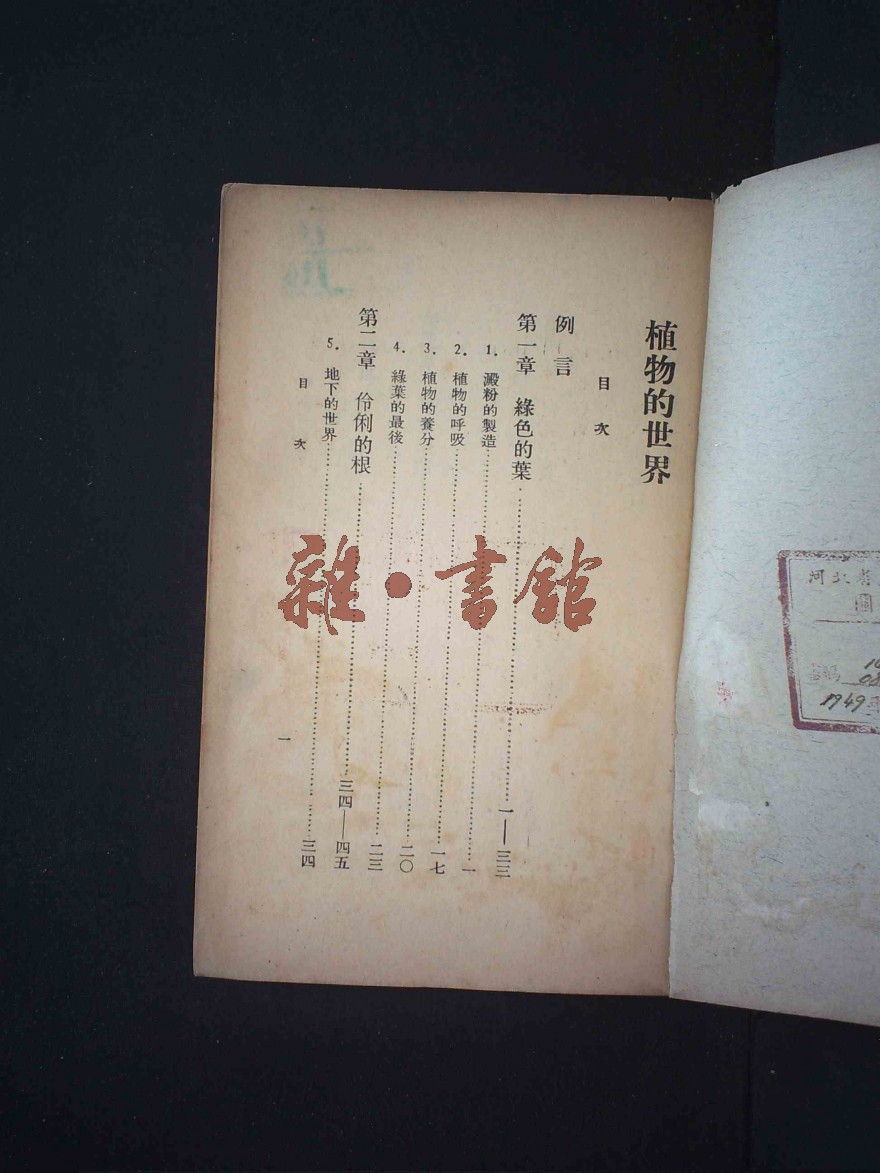 植物的世界
目次
例言
第一章 綠色的葉 一—三三
1. 澱粉的製造 一
2. 植物的呼吸 一七
3. 植物的養分 二〇
4. 綠葉的最後 二三
第二章 伶俐的根 三四—四五
5. 地下的世界 三四
目次
一
雜·書館
河北
圖
1749